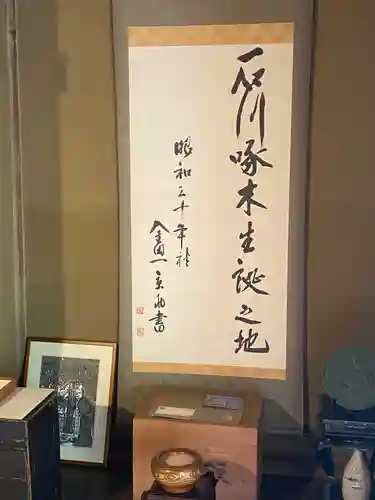 石川啄木生誕之地
昭和三十年秋
金田一京助書